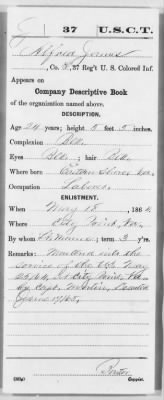 37 U.S.C.T.
Alfred James
Co. , 37 Reg't U. S. Colored Inf.
Appears on
Company Descriptive Book
of the organization named above.
DESCRIPTION.
Age 24 years; height 5 feet 5 inches.
Complexion Blk.
Eyes Blk.; hair Blk.
Where born Eastern Shore, Va.
Occupation Laborer
ENLISTMENT.
When May 15, 1864.
Where City Point, Va.
By whom ; term 3 y'rs.
Remarks: Mustered into the
service of the U.S. May
at City Point, Va.
by Capt. Martin.
Copyist.